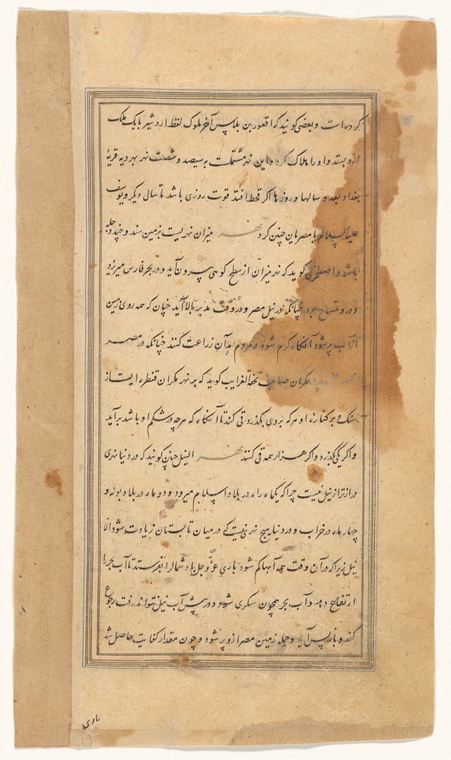 کرده است و بعضی گویند که اقفور بن بلاس آخر ملوک نفط اردشیر بابک ملک
ازو بستد و او را هلاک کرد و این نهر مشتملست به سیصد و شصت نهر بهر دیه قریهٔ
بغداد بعدد سالها و روزها اگر قحط افتد قوت روزی باشد تا سالی دیگر و یوسف
علیه السلام با مصریان چنین کرد نهر میزان نهریست بزمین سند و
باشد و اصطخری گوید که نهر میزان از سطح کوهی بیرون آید و در بحر فارس میریزد
و درو تمساح بود چنانکه در نیل مصر و در وقت مد بر بالا آید چنان که همه روی زمین
از آب پر شود آنگاه کم شود و مردم بدان زراعت کنند چنانکه در مصر
نهر مکران صاحب تحفة الغرایب گوید که بر نهر مکران قنطره ایست از
سنگ بر کنارهٔ او هر که بر وی بگذرد قی کند تا آنگاه که هر چه در شکم او باشد برآید
و اگر یکی بگذرد و اگر هزار همه قی کنند نهر النیل چنین گویند که در دنیا نهری
درازتر از نیل نیست چرا که یکماه راه در بلاد اسلام میرود و دو ماه در بلاد نوبه و
چهار ماه در خراب و در دنیا هیچ نهری نیست که در میان تابستان زیادت شود الا
نیل زیرا که در آن وقت همه آبها کم شود باری عز و جل باد شمال را بفرستد تا آب بحر را
ارتفاع دهد و آب بحر همچون سکری شود و در پیش آب نیل نتواند رفت رجوع
کند و باز پس آید و جمله زمین مصر ازو پر شود و چون مقدار کفایت حاصل شد
باری